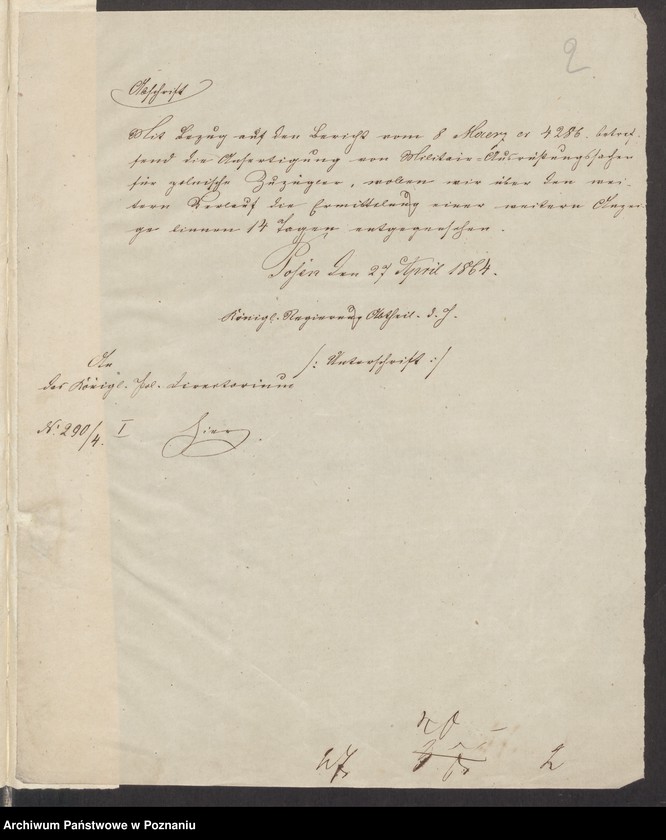 2
Abschrift
Mit Bezug auf den Bericht vom 8 Maerz cr 4286. betref-
fend die Anfertigung von Militair-Ausrüstungssachen
für polnische Zuzügler, wollen wir über den wei-
tern Verlauf die Ermittelung einer weitern Anzei-
ge binnen 14 Tagen entgegensehen.
Posen den 27 April 1864.
Königl. Regierung Abtheil. d. J.
/: Unterschrift :/
An
das Königl. Pol. Directorium
No. 290/4. I hier
2
Archiwum Państwowe w Poznaniu